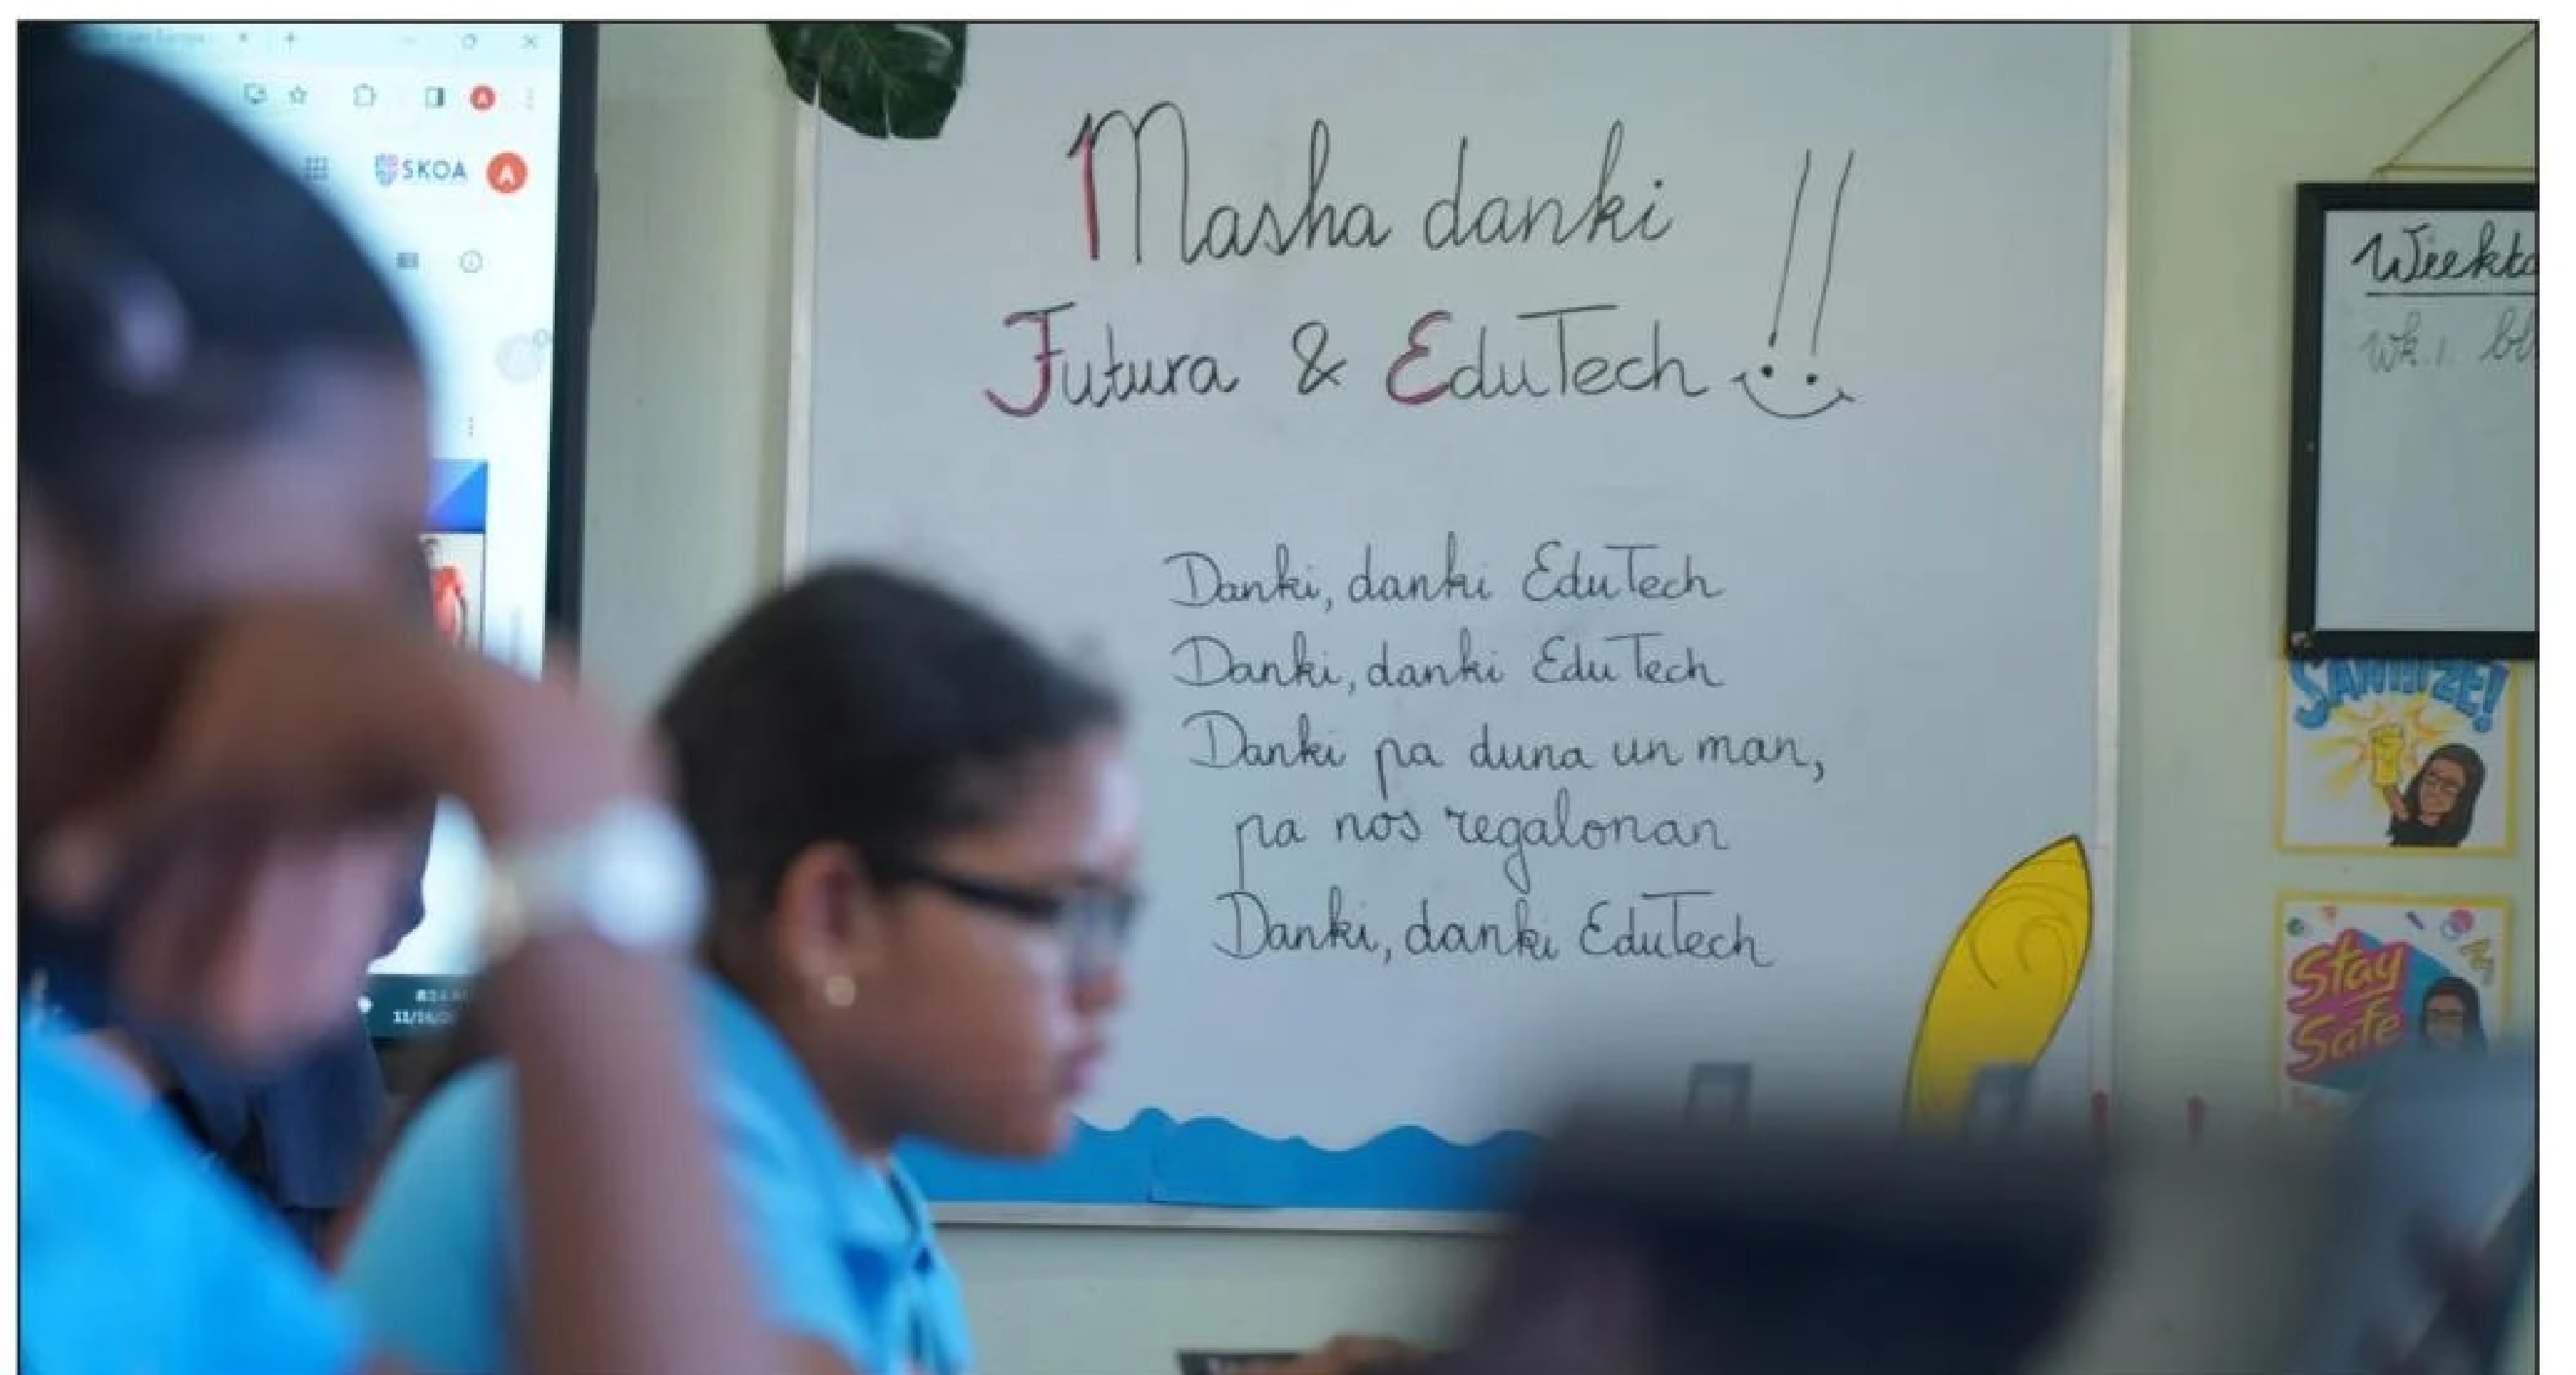 SKOA
A
Masha danki !!
Futura & EduTech
Danki, danki EduTech
Danki, danki EduTech
Danki pa duna un man,
pa nos regalonan
Danki, danki EduTech
wk. 1.
SANITIZE!
Stay
Safe